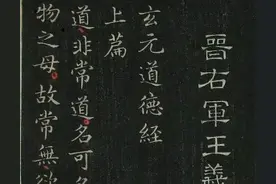 晉右軍王羲
玄元道德經
上篇
道非常道名可名
物之母故常無欲